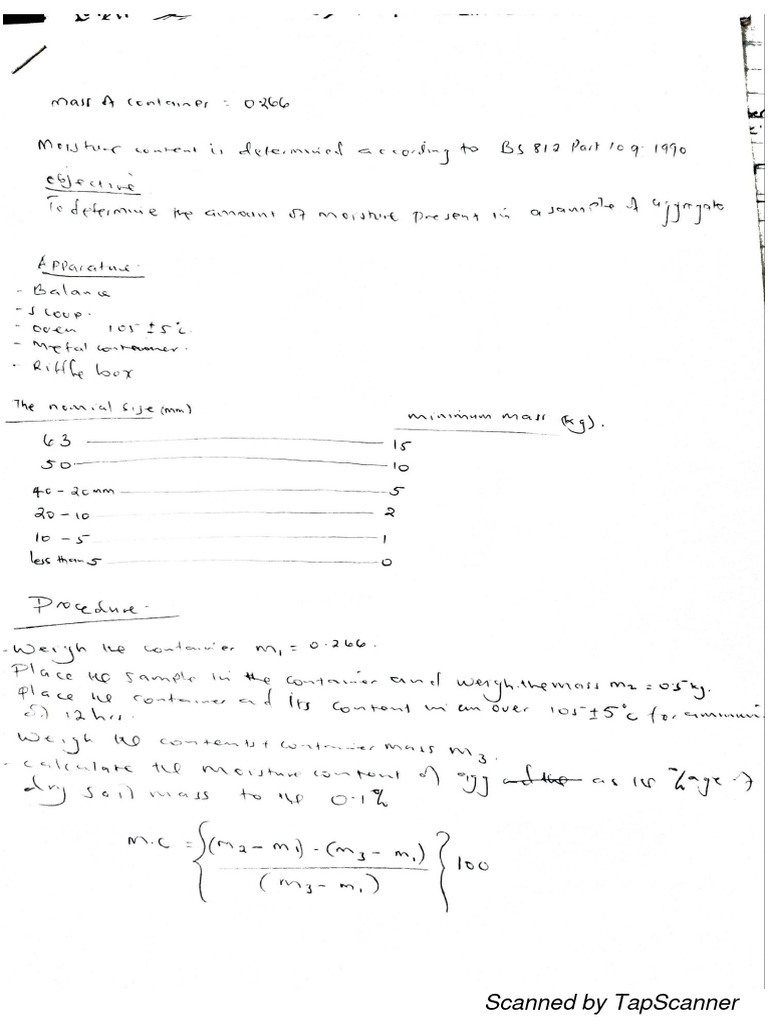 Mass of container = 0.266
Moisture content is determined according to BS 812 Part 109. 1990
Objective
To determine the amount of moisture present in a sample of aggregate
Apparatus.
- Balance
- Scoop.
- oven 105 ± 5°c.
- Metal container.
- Riffle box
The nomial size (mm) minimum mass (kg).
63 15
50 10
40 - 20mm 5
20 - 10 2
10 - 5 1
less than 5 0
Procedure.
- Weigh the container m1 = 0.266.
Place the sample in the container and weigh. the mass m2 = 0.5 kg.
Place the container and its content in an over 105 ± 5°c for a mmum
of 12 hrs.
Weigh the contents + container mass m3.
- calculate the moisture content of agg as its %age of
dry soil mass to the 0.1%
M.C = {(m2 - m1) - (m3 - m1) / (m3 - m1)} 100
Scanned by TapScanner